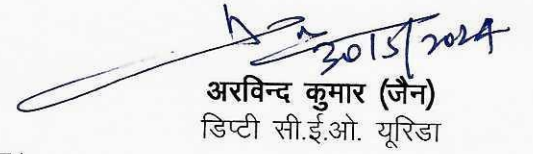 30/5/2024
अरविन्द कुमार (जैन)
डिप्टी सी.ई.ओ. यूरिडा